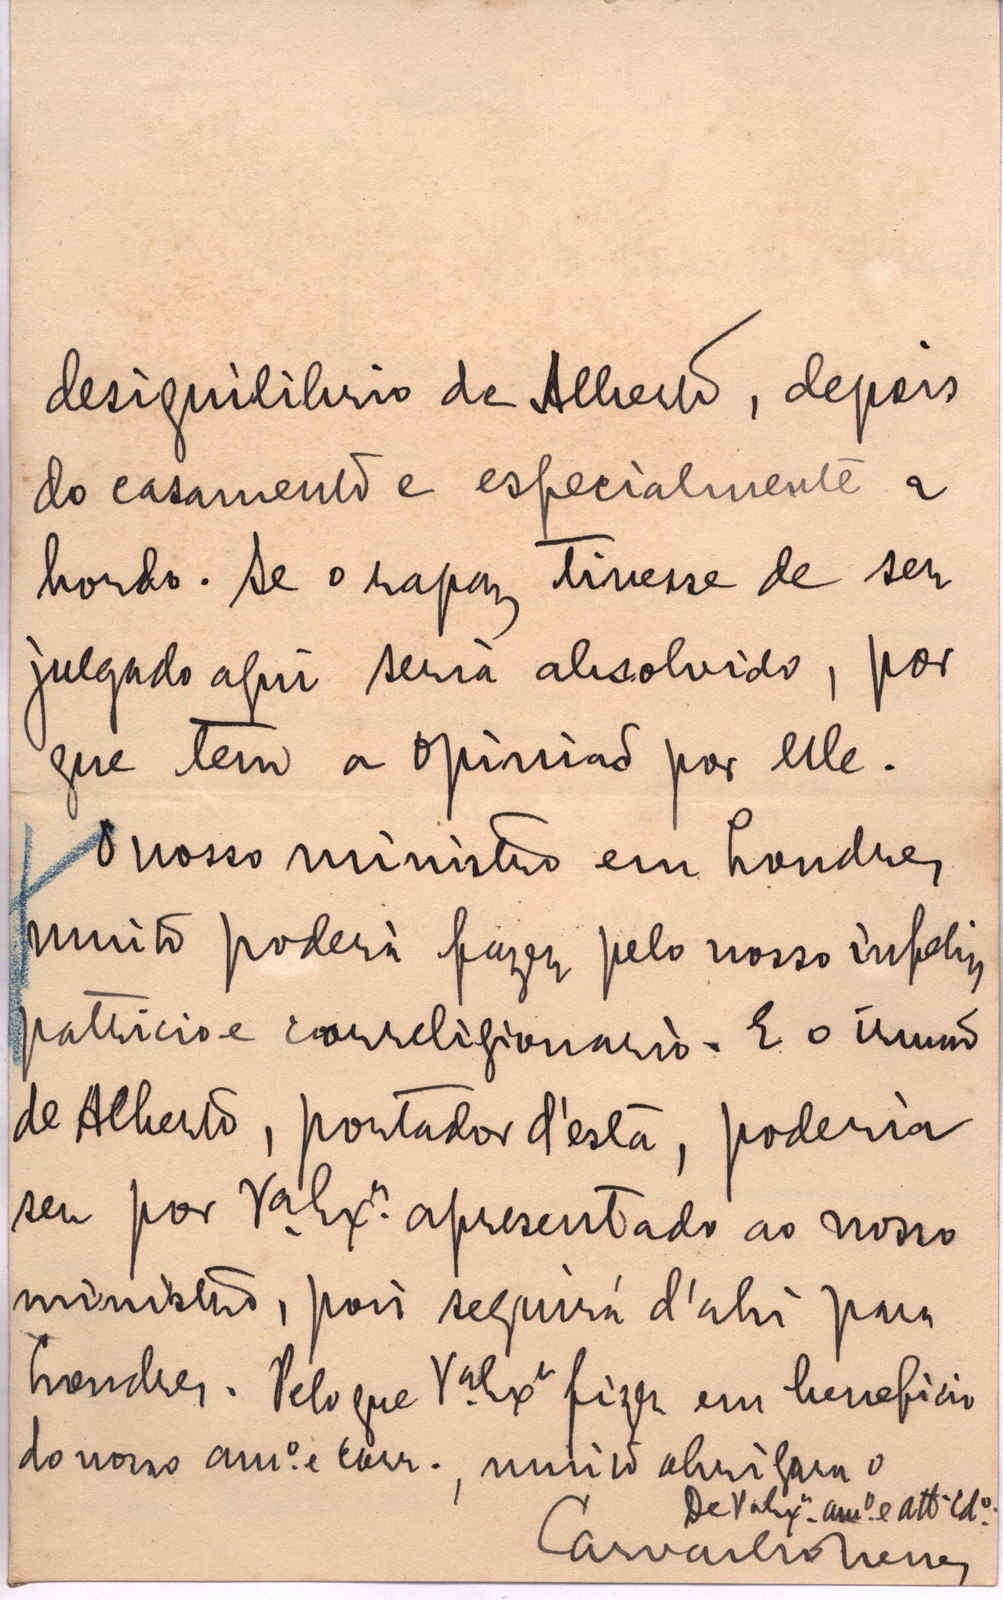 desiquilibrio de Alberto, depois
do casamento e especialmente a
bordo. Se o rapaz tivesse de ser
julgado aqui seria absolvido, por
que tem a opinião por elle.
O nosso ministro em Londres
muito poderà fazer pelo nosso infeliz
patricio e correligionario. E o irmão
de Alberto, portador d'esta, poderia
ser por Va. Exa. apresentado ao nosso
ministro, pois seguirá d'ahi para
Londres. Pelo que Va. Exa fizer em beneficio
do nosso amo. e corr., muito obrigara o
De Va Exa. amo. e atto
Carvalho Neves